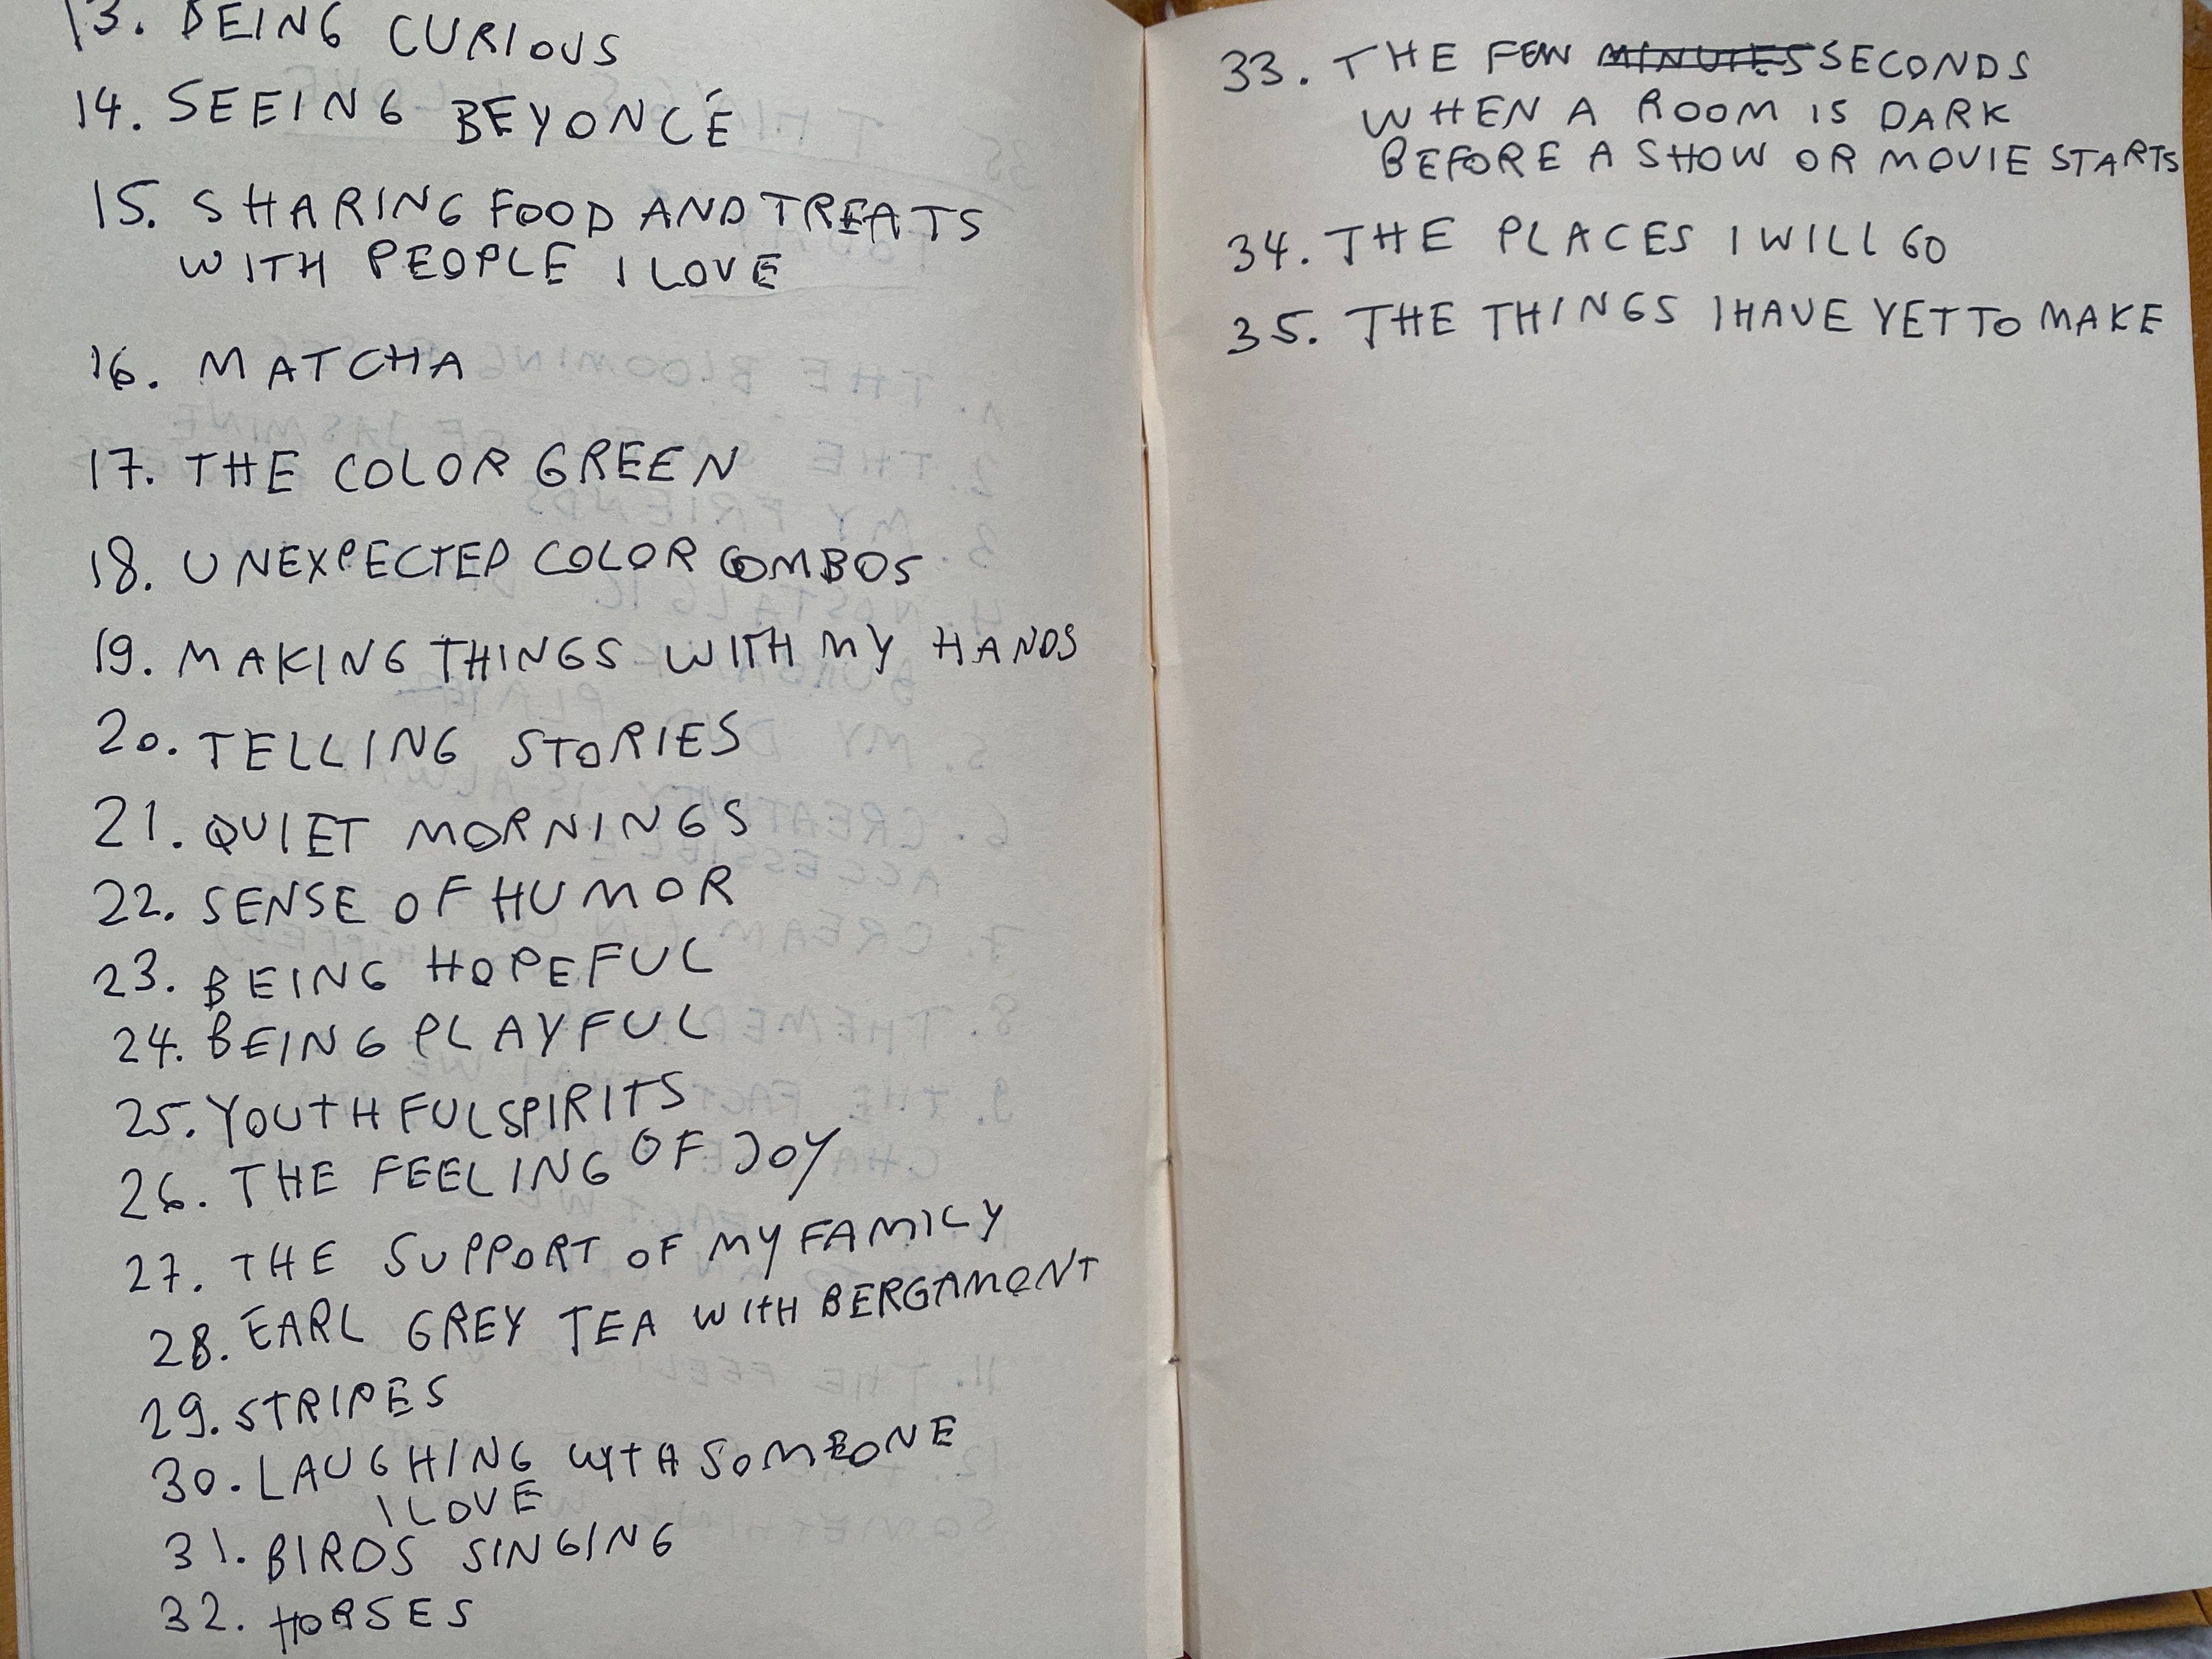 13. BEING CURIOUS
14. SEEING BEYONCÉ
15. SHARING FOOD AND TREATS
WITH PEOPLE I LOVE
16. MATCHA
17. THE COLOR GREEN
18. UNEXPECTED COLOR COMBOS
19. MAKING THINGS WITH MY HANDS
20. TELLING STORIES
21. QUIET MORNINGS
22. SENSE OF HUMOR
23. BEING HOPEFUL
24. BEING PLAYFUL
25. YOUTHFUL SPIRITS
26. THE FEELING OF JOY
27. THE SUPPORT OF MY FAMILY
28. EARL GREY TEA WITH BERGAMONT
29. STRIPES
30. LAUGHING WITH SOMEONE
I LOVE
31. BIRDS SINGING
32. HORSES
33. THE FEW MINUTES SECONDS
WHEN A ROOM IS DARK
BEFORE A SHOW OR MOVIE STARTS
34. THE PLACES I WILL GO
35. THE THINGS I HAVE YET TO MAKE